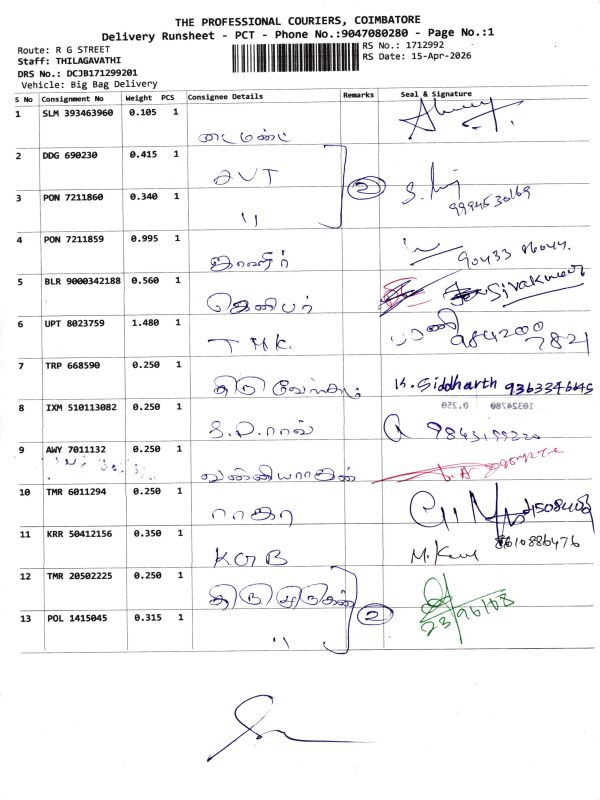 THE PROFESSIONAL COURIERS, COIMBATORE
Delivery Runsheet - PCT - Phone No.:9047080280 - Page No.:1
Route: R G STREET
RS No.: 1712992
Staff: THILAGAVATHI
RS Date: 15-Apr-2026
DRS No.: DCJB171299201
Vehicle: Big Bag Delivery
S No Consignment No Weight PCS Consignee Details Remarks Seal & Signature
1 SLM 393463960 0.105 1
டைமண்ட்
2 DDG 690230 0.415 1
AVT
2
3 PON 7211860 0.340 1
9994530169
"
4 PON 7211859 0.995 1
90433 86044
5 BLR 9000342188 0.560 1
Sivakumar
ஜெனிபர்
6 UPT 8023759 1.480 1
பரணி
TMK.
984200 7821
7 TRP 668590 0.250 1
K. Siddharth 9363334645
8 IXM 510113082 0.250 1
10324780 0.250
S.P.ராஸ்
9 AWY 7011132 0.250 1
10 TMR 6011294 0.250 1
ராகா
11 KRR 50412156 0.350 1
8610886476
KGB
12 TMR 20502225 0.250 1
திருமுருகன்
2
13 POL 1415045 0.315 1
23/96108
"